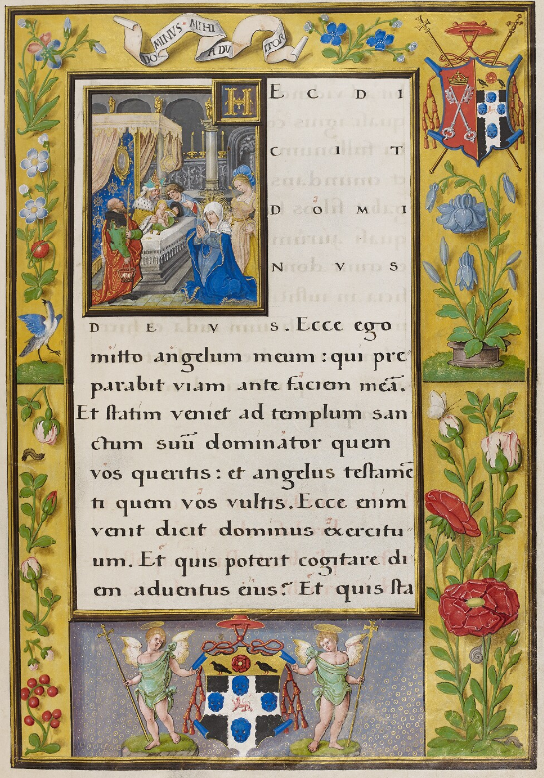 DOMINVS MIHI ADIVTOR
HEC DI
CIT
DOMI
NVS
DEVS. Ecce ego
mitto angelum meum : qui pre
parabit viam ante faciem meã.
Et statim veniet ad templum san
ctum suũ dominator quem
vos queritis : et angelus testamẽ
ti quem vos vultis. Ecce enim
venit dicit dominus exercitu
um. Et quis poterit cogitare di
em aduentus eius? Et quis sta